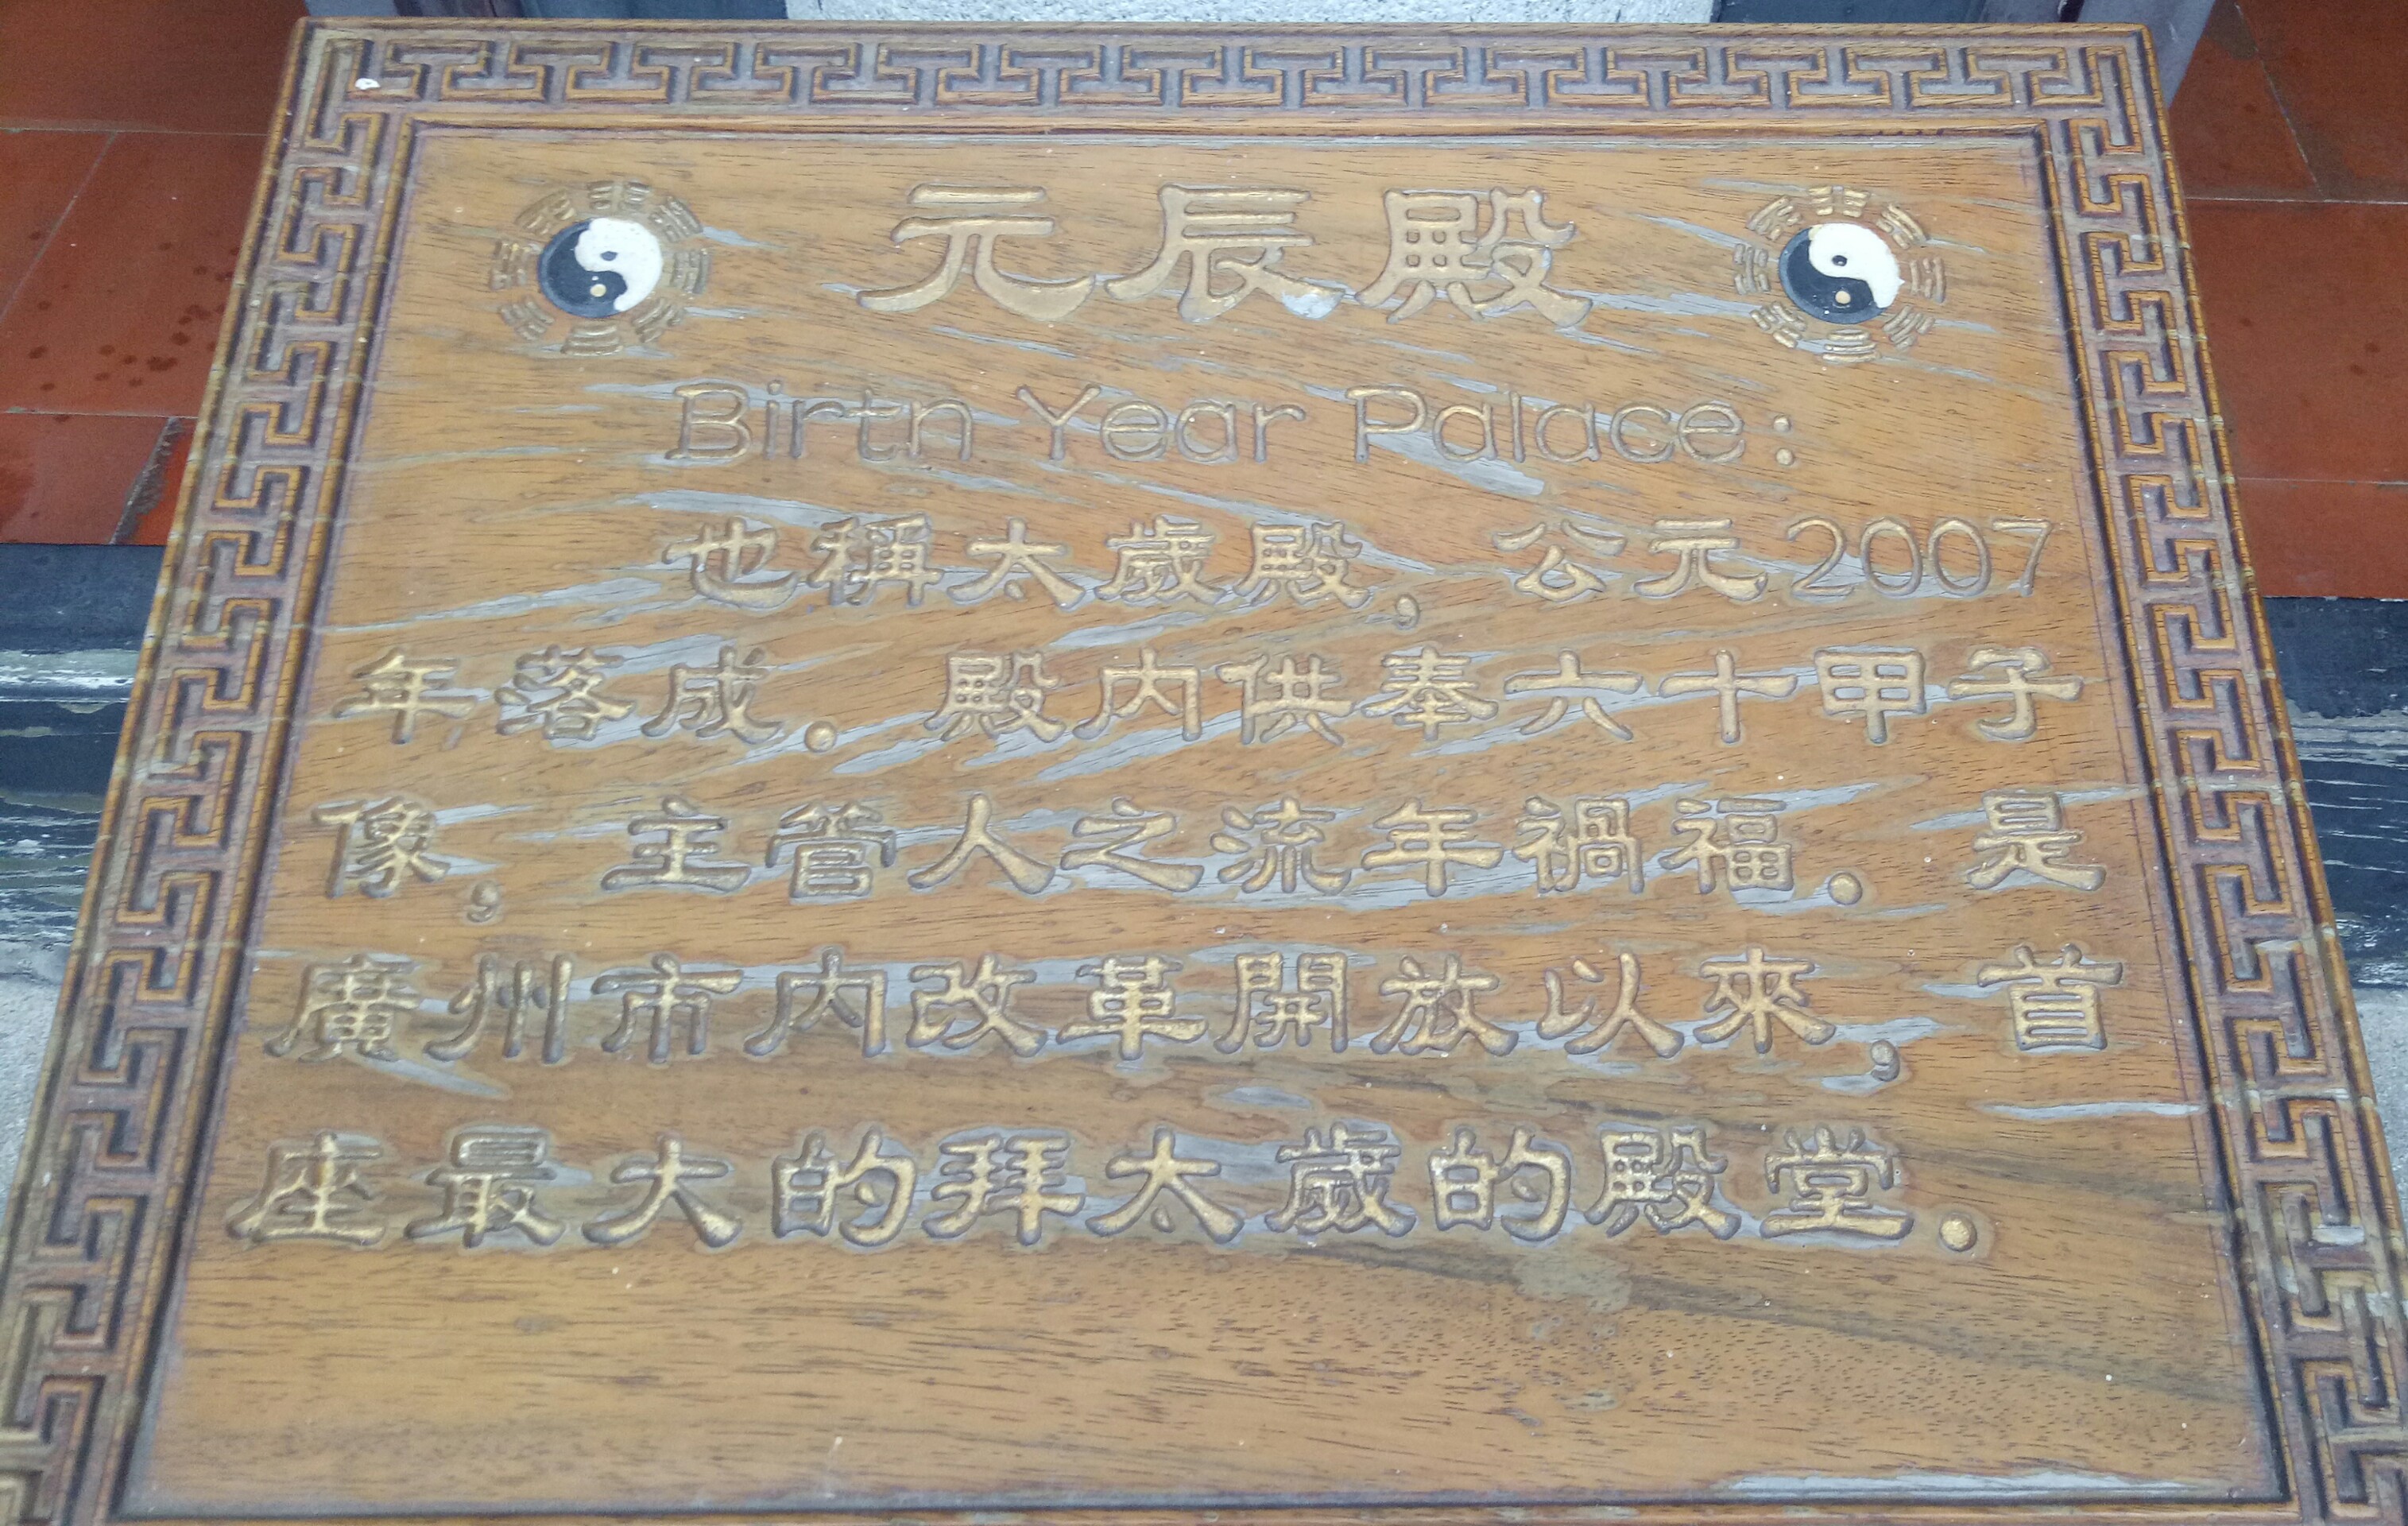 元辰殿
Birth Year Palace:
也稱太歲殿,公元2007
年落成.殿内供奉六十甲子
像,主管人之流年禍福.是
廣州市内改革開放以來,首
座最大的拜太歲的殿堂.